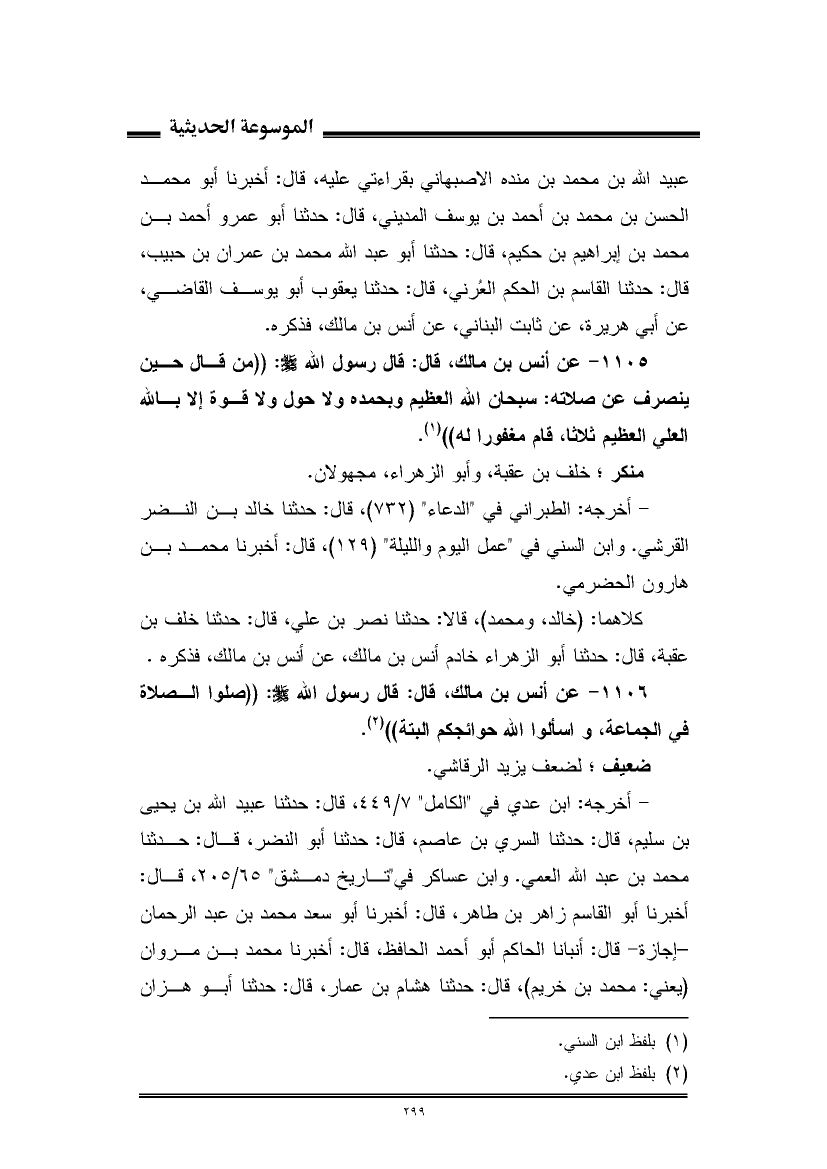 الموسوعة الحديثية
عبيد الله بن محمد بن منده الاصبهاني بقراءتي عليه، قال: أخبرنا أبو محمد
الحسن بن محمد بن أحمد بن يوسف المديني، قال: حدثنا أبو عمرو أحمد بن
محمد بن إبراهيم بن حكيم، قال: حدثنا أبو عبد الله محمد بن عمران بن حبيب،
قال: حدثنا القاسم بن الحكم العُرني، قال: حدثنا يعقوب أبو يوسف القاضي،
عن أبي هريرة، عن ثابت البناني، عن أنس بن مالك، فذكره.
١١٠٥- عن أنس بن مالك، قال: قال رسول الله ﷺ: ((من قال حين
ينصرف عن صلاته: سبحان الله العظيم وبحمده ولا حول ولا قوة إلا بالله
العلي العظيم ثلاثا، قام مغفورا له))(١).
منكر ؛ خلف بن عقبة، وأبو الزهراء، مجهولان.
- أخرجه: الطبراني في "الدعاء" (٧٣٢)، قال: حدثنا خالد بن النضر
القرشي. وابن السني في "عمل اليوم والليلة" (١٢٩)، قال: أخبرنا محمد بن
هارون الحضرمي.
كلاهما: (خالد، ومحمد)، قالا: حدثنا نصر بن علي، قال: حدثنا خلف بن
عقبة، قال: حدثنا أبو الزهراء خادم أنس بن مالك، عن أنس بن مالك، فذكره .
١١٠٦- عن أنس بن مالك، قال: قال رسول الله ﷺ: ((صلوا الصلاة
في الجماعة، و اسألوا الله حوائجكم البتة))(٢).
ضعيف ؛ لضعف يزيد الرقاشي.
- أخرجه: ابن عدي في "الكامل" ٤٤٩/٧، قال: حدثنا عبيد الله بن يحيى
بن سليم، قال: حدثنا السري بن عاصم، قال: حدثنا أبو النضر، قال: حدثنا
محمد بن عبد الله العمي. وابن عساكر في"تاريخ دمشق" ٢٠٥/٦٥، قال:
أخبرنا أبو القاسم زاهر بن طاهر، قال: أخبرنا أبو سعد محمد بن عبد الرحمان
-إجازة- قال: أنبانا الحاكم أبو أحمد الحافظ، قال: أخبرنا محمد بن مروان
(يعني: محمد بن خريم)، قال: حدثنا هشام بن عمار، قال: حدثنا أبو هزان
(١) بلفظ ابن السني.
(٢) بلفظ ابن عدي.
٢٩٩